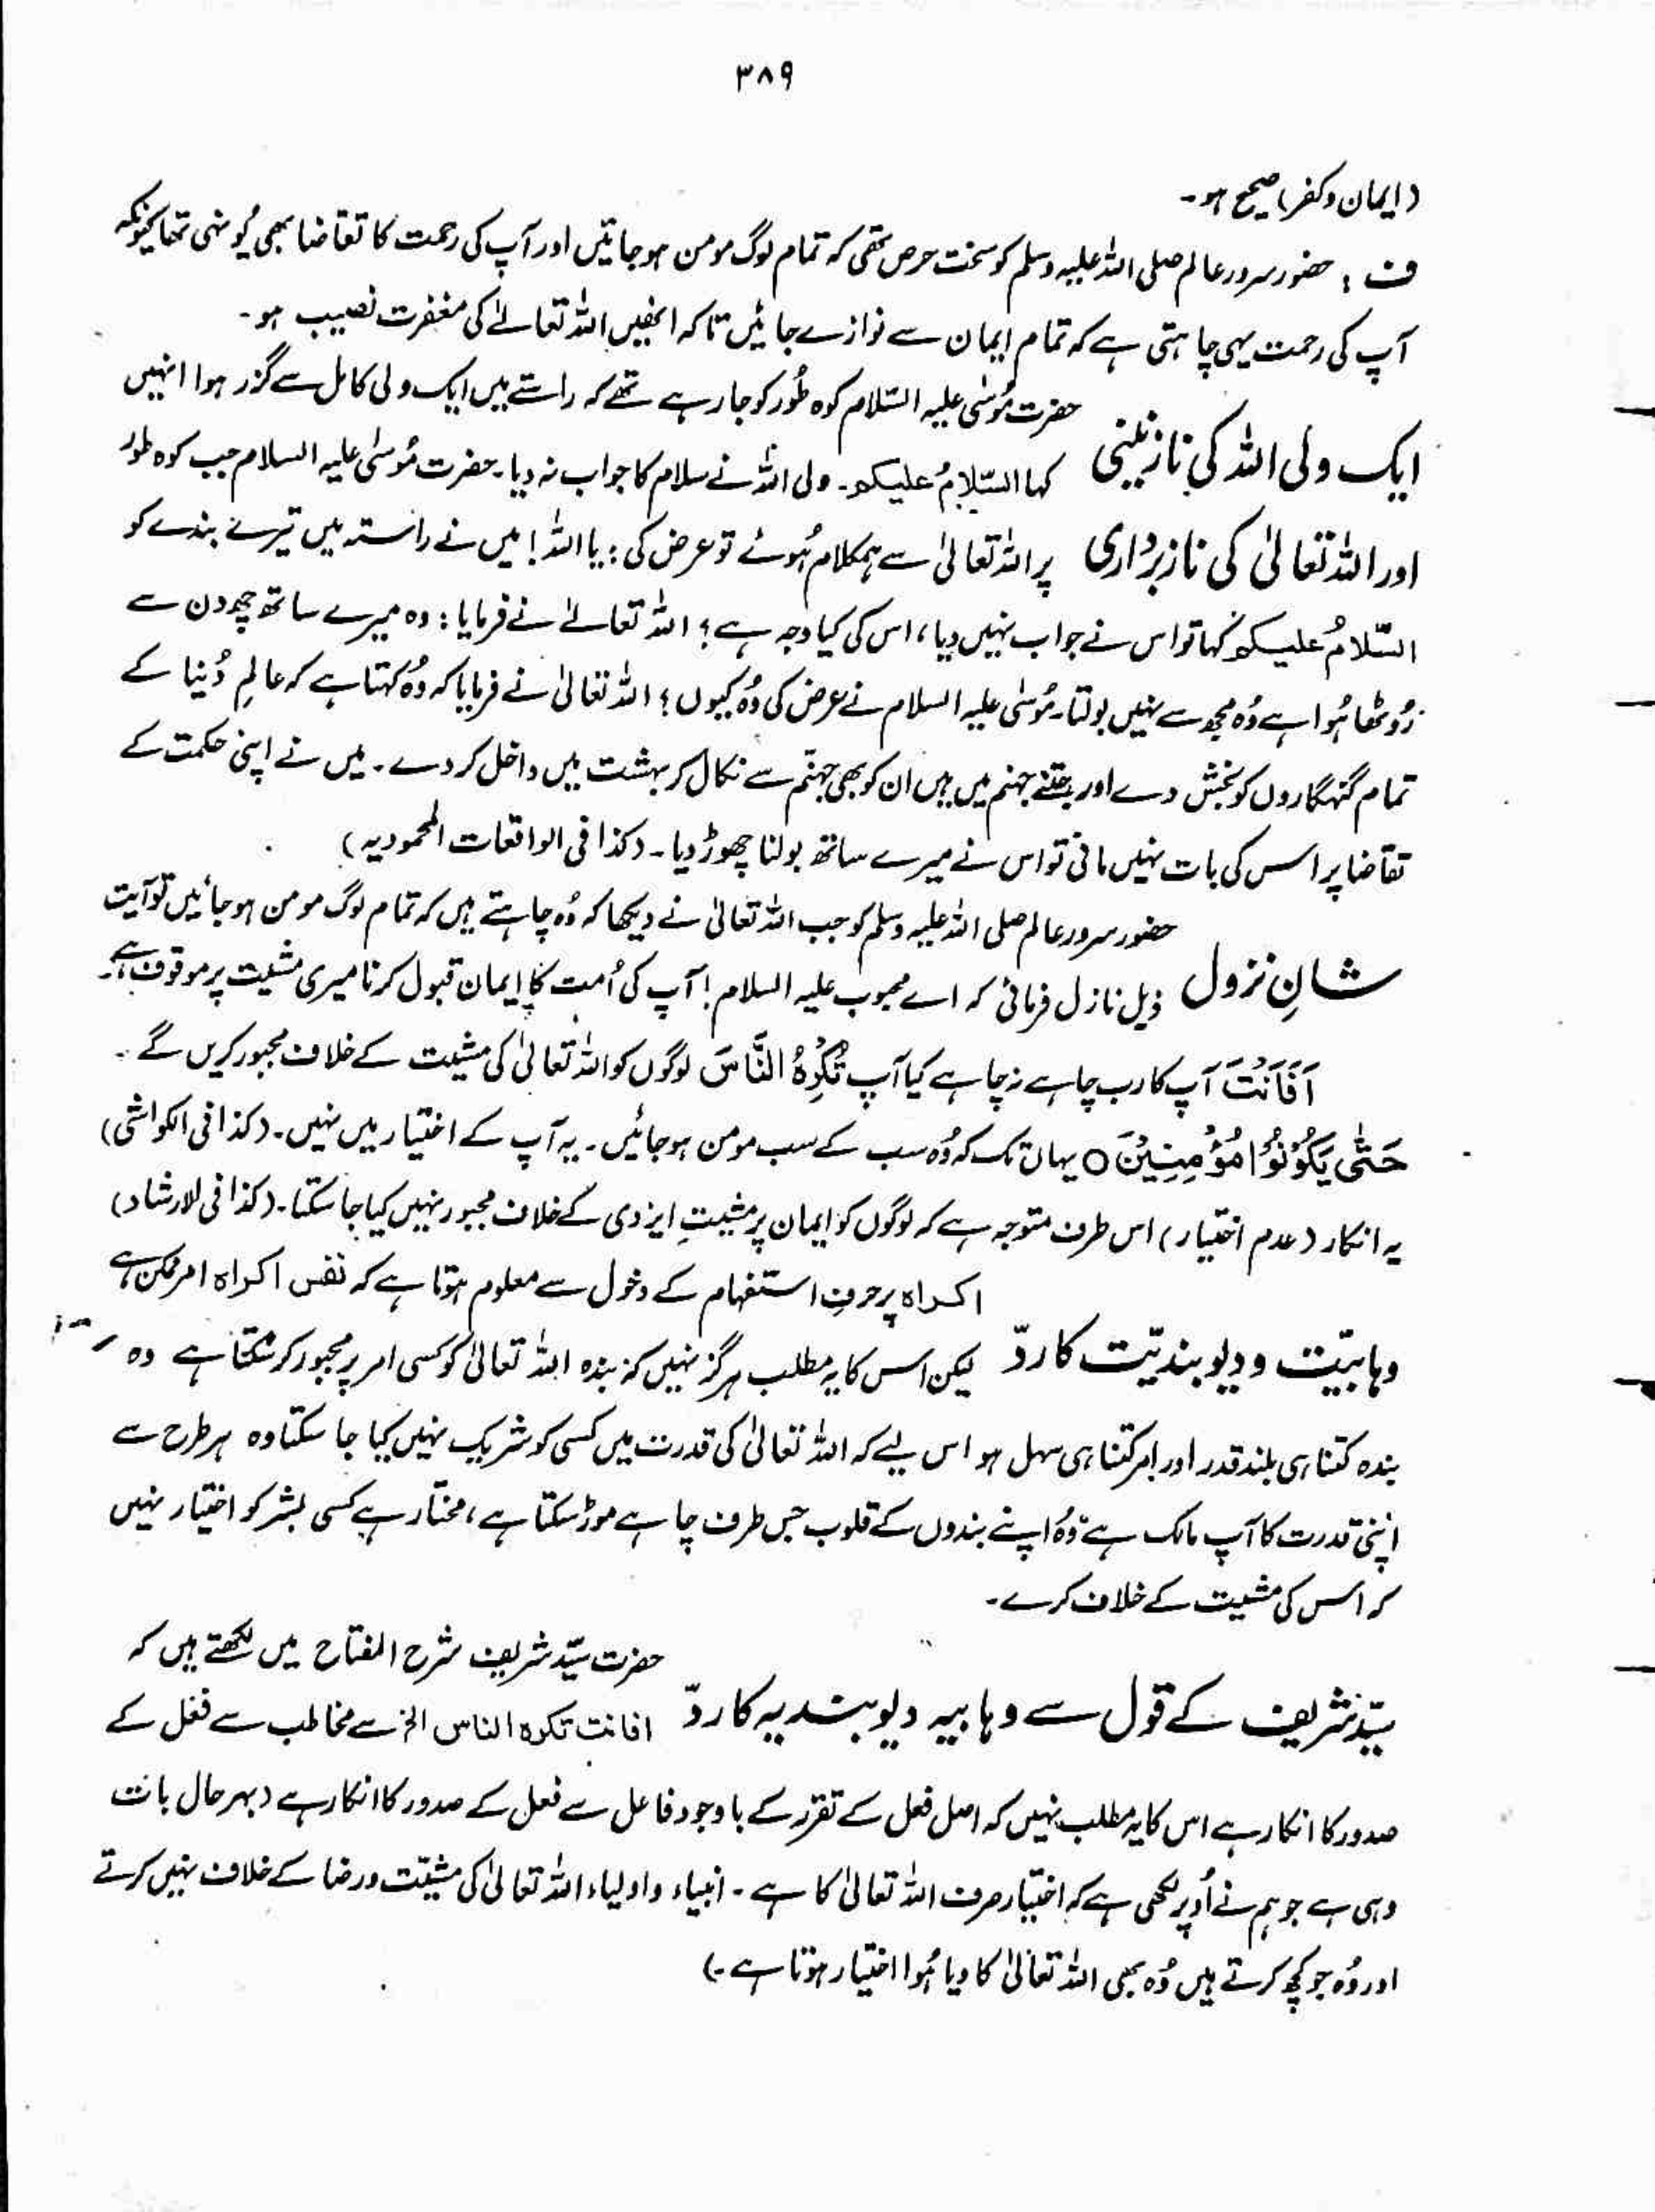 ۳۸۹
(ایمان و کفر) صحیح ہو۔
ف : حضور سرور عالم صلی اللہ علیہ وسلم کو سخت حرص تھی کہ تمام لوگ مومن ہو جائیں اور آپ کی رحمت کا تقاضا بھی یُونہی تھا کیونکہ
آپ کی رحمت یہی چاہتی ہے کہ تمام ایمان سے نوازے جائیں تاکہ انھیں اللہ تعالےٰ کی مغفرت نصیب ہو۔
حضرت مُوسٰی علیہ السّلام کوہ طُور کو جا رہے تھے کہ راستے میں ایک ولی کامل سے گزر ہوا انہیں
ایک ولی اللہ کی ناز نینی
کہا السّلامُ علیکم۔ ولی اللہ نے سلام کا جواب نہ دیا۔ حضرت مُوسٰی علیہ السلام جب کوہ طور
اور اللہ تعالیٰ کی ناز برداری
پر اللہ تعالیٰ سے ہمکلام ہُوئے تو عرض کی : یا اللہ! میں نے راستہ میں تیرے بندے کو
السّلامُ علیکم کہا تو اس نے جواب نہیں دیا، اس کی کیا وجہ ہے؟ اللہ تعالےٰ نے فرمایا : وہ میرے ساتھ چھ دن سے
رُوٹھا ہُوا ہے وُہ مجھ سے نہیں بولتا۔ مُوسٰی علیہ السلام نے عرض کی وُہ کیوں؟ اللہ تعالیٰ نے فرمایا کہ وُہ کہتا ہے کہ عالمِ دُنیا کے
تمام گنہگاروں کو بخش دے اور جتنے جہنم میں ہیں ان کو بھی جہنّم سے نکال کر بہشت میں داخل کر دے۔ میں نے اپنی حکمت کے
تقاضا پر اس کی بات نہیں مانی تو اس نے میرے ساتھ بولنا چھوڑ دیا۔ (کذا فی الواقعات المحمودیہ)
حضور سرور عالم صلی اللہ علیہ وسلم کو جب اللہ تعالیٰ نے دیکھا کہ وُہ چاہتے ہیں کہ تمام لوگ مومن ہو جائیں تو آیت
شانِ نزول
ذیل نازل فرمائی کہ اے محبوب علیہ السلام! آپ کی اُمت کا ایمان قبول کرنا میری مشیت پر موقوف ہے۔
اَفَاَنْتَ آپ کا رب چاہے نہ چاہے کیا آپ تُکْرِہُ النَّاسَ لوگوں کو اللہ تعالیٰ کی مشیت کے خلاف مجبور کریں گے۔
حَتّٰی یَکُوْنُوْا مُؤْمِنِیْنَ ○ یہاں تک کہ وُہ سب کے سب مومن ہو جائیں۔ یہ آپ کے اختیار میں نہیں۔ (کذا فی الکواشی)
یہ انکار (عدم اختیار) اس طرف متوجہ ہے کہ لوگوں کو ایمان پر مشیتِ ایزدی کے خلاف مجبور نہیں کیا جا سکتا۔ (کذا فی الارشاد)
اکراہ پر حرفِ استفہام کے دخول سے معلوم ہوتا ہے کہ نفس اکراہ امر ممکن ہے
وہابیّت و دیوبندیّت کا ردّ
لیکن اس کا یہ مطلب ہرگز نہیں کہ بندہ اللہ تعالیٰ کو کسی امر پر مجبور کر سکتا ہے وہ
بندہ کتنا ہی بلند قدر اور امر کتنا ہی سہل ہو اس لیے کہ اللہ تعالیٰ کی قدرت میں کسی کو شریک نہیں کیا جا سکتا وہ ہر طرح سے
اپنی قدرت کا آپ مالک ہے وُہ اپنے بندوں کے قلوب جس طرف چاہے موڑ سکتا ہے، مختار ہے کسی بشر کو اختیار نہیں
کہ اس کی مشیت کے خلاف کرے۔
حضرت سیّد شریف شرح المفتاح میں لکھتے ہیں کہ
سیّد شریف کے قول سے وہابیہ دیوبندیہ کا ردّ
افانت تکرہ الناس الخ سے مخاطب سے فعل کے
صدور کا انکار ہے اس کا یہ مطلب نہیں کہ اصل فعل کے تقرر کے باوجود فاعل سے فعل کے صدور کا انکار ہے (بہر حال بات
وہی ہے جو ہم نے اُوپر لکھی ہے کہ اختیار صرف اللہ تعالیٰ کا ہے۔ انبیاء و اولیاء اللہ تعالیٰ کی مشیّت و رضا کے خلاف نہیں کرتے
اور وُہ جو کچھ کرتے ہیں وُہ بھی اللہ تعالیٰ کا دیا ہُوا اختیار ہوتا ہے۔)